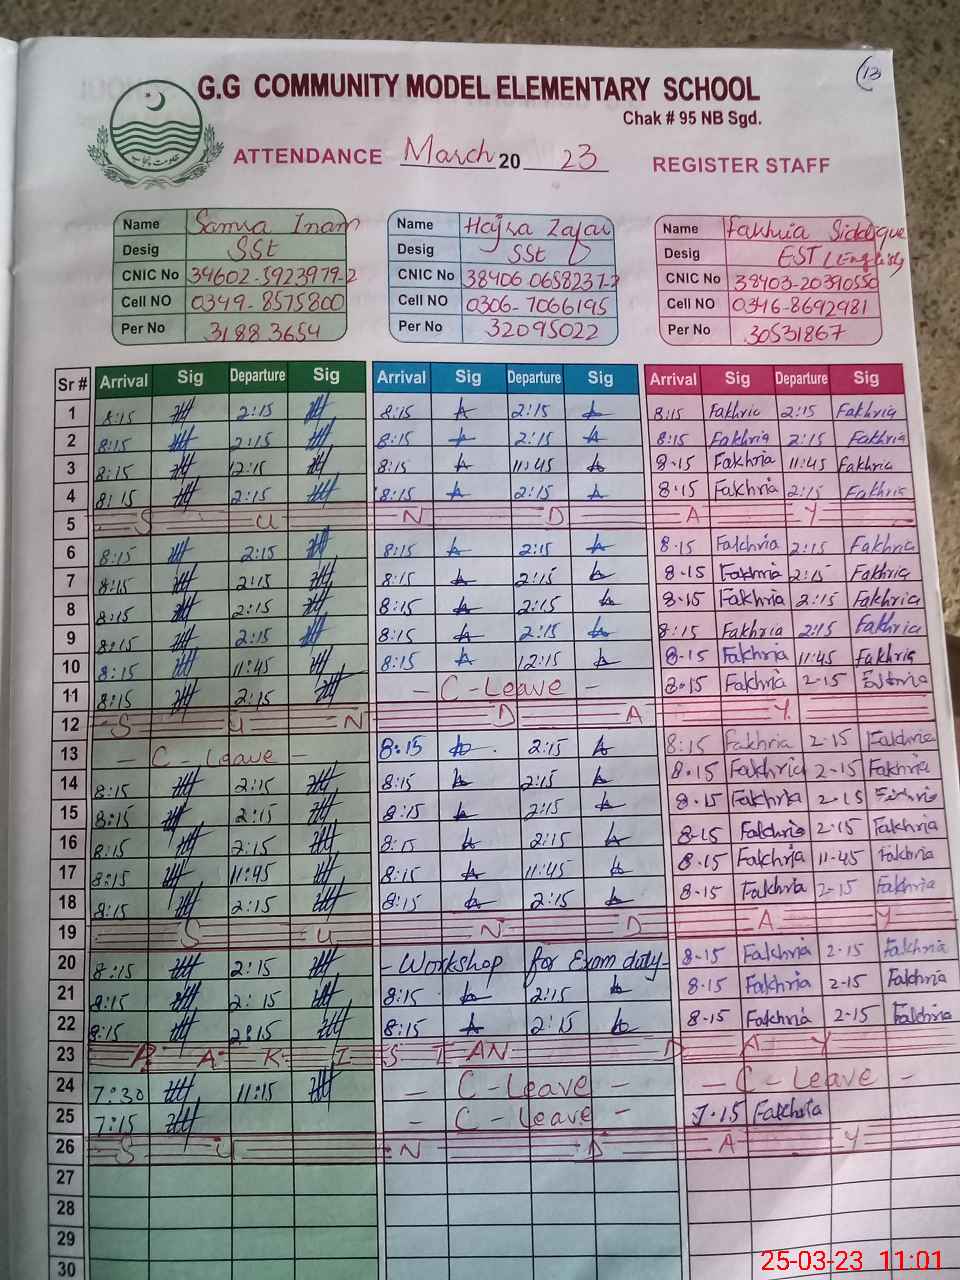 13
G.G COMMUNITY MODEL ELEMENTARY SCHOOL
Chak # 95 NB Sgd.
حکومت پنجاب
ATTENDANCE March 20 23 REGISTER STAFF
Name Samra Inam Name Hajra Zafar Name Fakhria Siddique
Desig SSt Desig SSt Desig EST (English)
CNIC No 34602-3923979-2 CNIC No 38406-0658237-2 CNIC No 38403-20390550
Cell NO 0349-8575800 Cell NO 0306-7066195 Cell NO 0346-8692981
Per No 31883654 Per No 32095022 Per No 30531867
Sr # Arrival Sig Departure Sig Arrival Sig Departure Sig Arrival Sig Departure Sig
1 8:15 2:15 8:15 2:15 8:15 Fakhria 2:15 Fakhria
2 8:15 2:15 8:15 2:15 8:15 Fakhria 2:15 Fakhria
3 8:15 12:15 8:15 11:45 8-15 Fakhria 11:45 Fakhria
4 8:15 2:15 8:15 2:15 8-15 Fakhria 2:15 Fakhria
5 S U N D A Y
6 8:15 2:15 8:15 2:15 8-15 Fakhria 2:15 Fakhria
7 8:15 2:15 8:15 2:15 8-15 Fakhria 2:15 Fakhria
8 8:15 2:15 8:15 2:15 8-15 Fakhria 2:15 Fakhria
9 8:15 2:15 8:15 2:15 8:15 Fakhria 2:15 Fakhria
10 8:15 11:45 8:15 12:15 8-15 Fakhria 11:45 Fakhria
11 8:15 2:15 - C-Leave - 8:15 Fakhria 2-15 Fakhria
12 S U N D A Y
13 - C-Leave - 8:15 2:15 8:15 Fakhria 2-15 Fakhria
14 8:15 2:15 8:15 2:15 8-15 Fakhria 2-15 Fakhria
15 8:15 2:15 8:15 2:15 8-15 Fakhria 2-15 Fakhria
16 8:15 2:15 8:15 2:15 8-15 Fakhria 2:15 Fakhria
17 8:15 11:45 8:15 11:45 8-15 Fakhria 11-45 Fakhria
18 8:15 2:15 8:15 2:15 8-15 Fakhria 2-15 Fakhria
19 S U N D A Y
20 8:15 2:15 - Workshop for Exam duty - 8-15 Fakhria 2-15 Fakhria
21 8:15 2:15 8:15 2:15 8-15 Fakhria 2-15 Fakhria
22 8:15 2:15 8:15 2:15 8-15 Fakhria 2-15 Fakhria
23 P A K I S T AN D A Y
24 7:30 11:15 - C-Leave - - C-Leave -
25 7:15 - C-Leave - 7-15 Fakhria
26 S U N D A Y
27
28
29
30
25-03-23 11:01